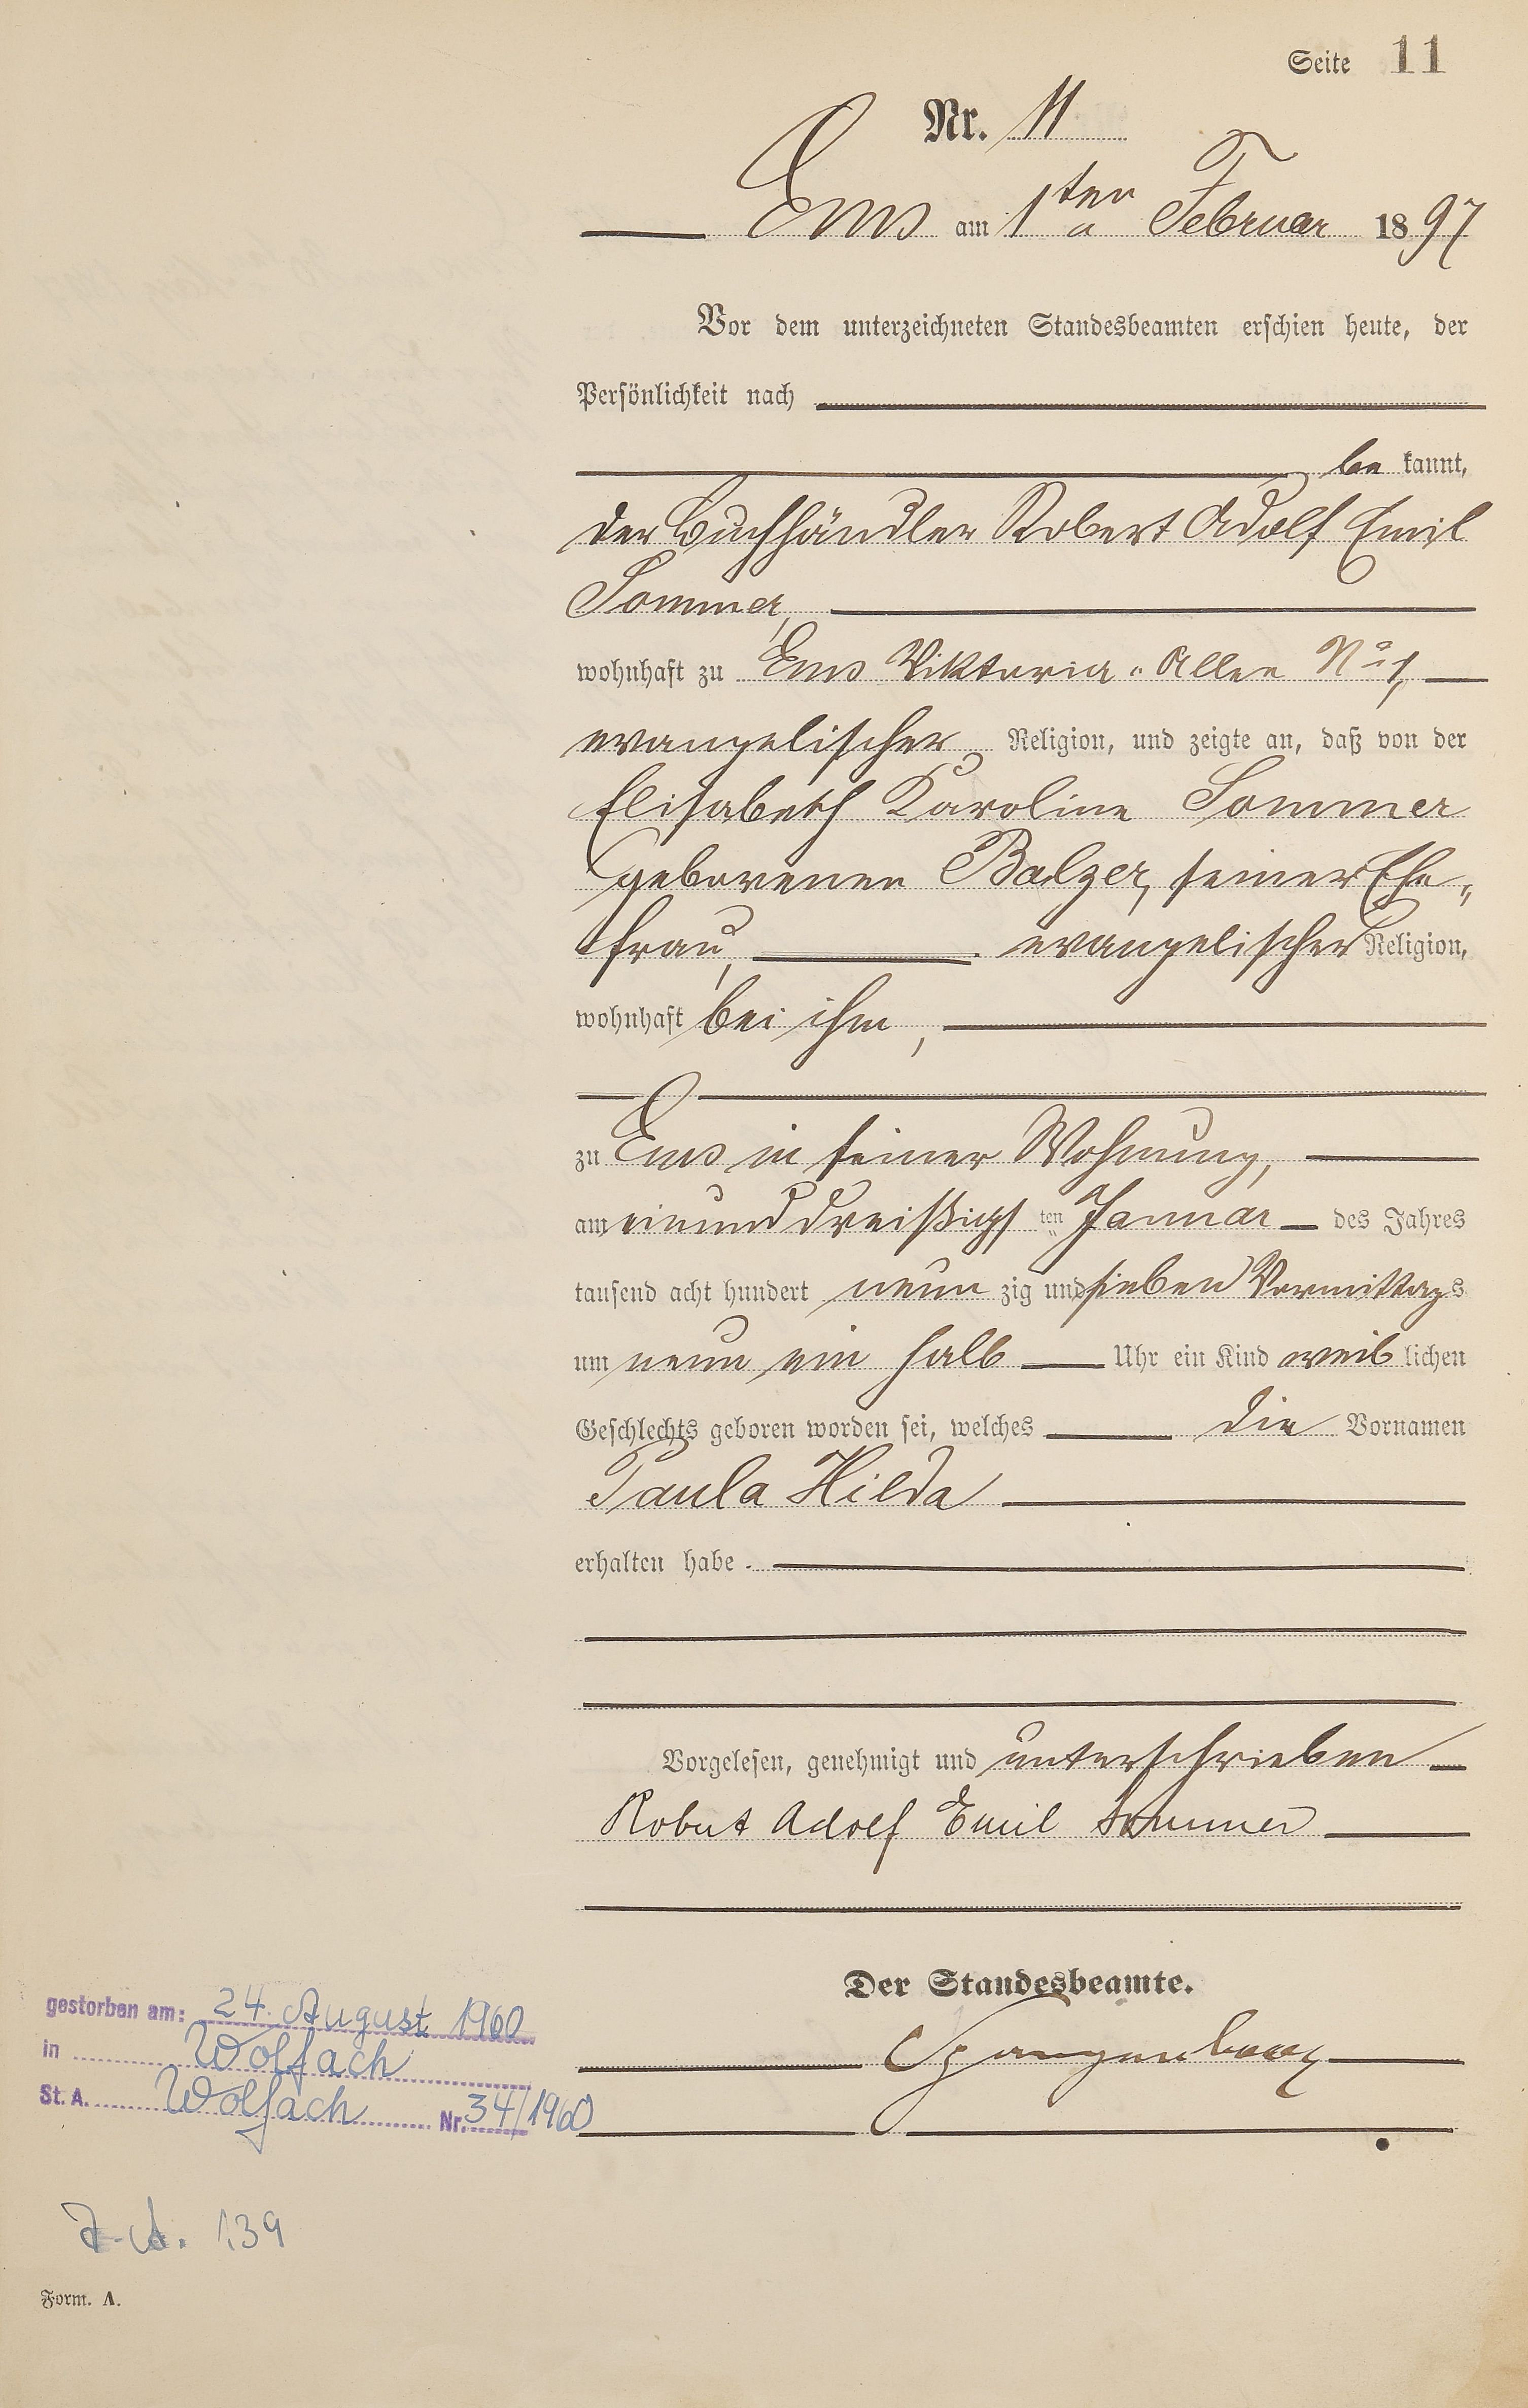 Seite 11
Nr. 11
Ems am 1ten Februar 1897
Vor dem unterzeichneten Standesbeamten erschien heute, der
Persönlichkeit nach
be kannt,
der Buchhändler Robert Adolf Emil
Sommer,
wohnhaft zu Ems Viktoria-Allee No 1,
evangelischer Religion, und zeigte an, daß von der
Elisabeth Karoline Sommer
geborenen Balzer, seiner Ehe-
frau, evangelischer Religion,
wohnhaft bei ihm,
zu Ems in seiner Wohnung,
am einunddreißigsten Januar des Jahres
tausend acht hundert neun zig und sieben Vormittags
um neun ein halb Uhr ein Kind weib lichen
Geschlechts geboren worden sei, welches die Vornamen
Paula Hilda
erhalten habe.
Vorgelesen, genehmigt und unterschrieben
Robert Adolf Emil Sommer
Der Standesbeamte.
Spangenberg
gestorben am: 24. August 1960
in Wolfach
St. A. Wolfach Nr. 34/1960
139
Form. A.